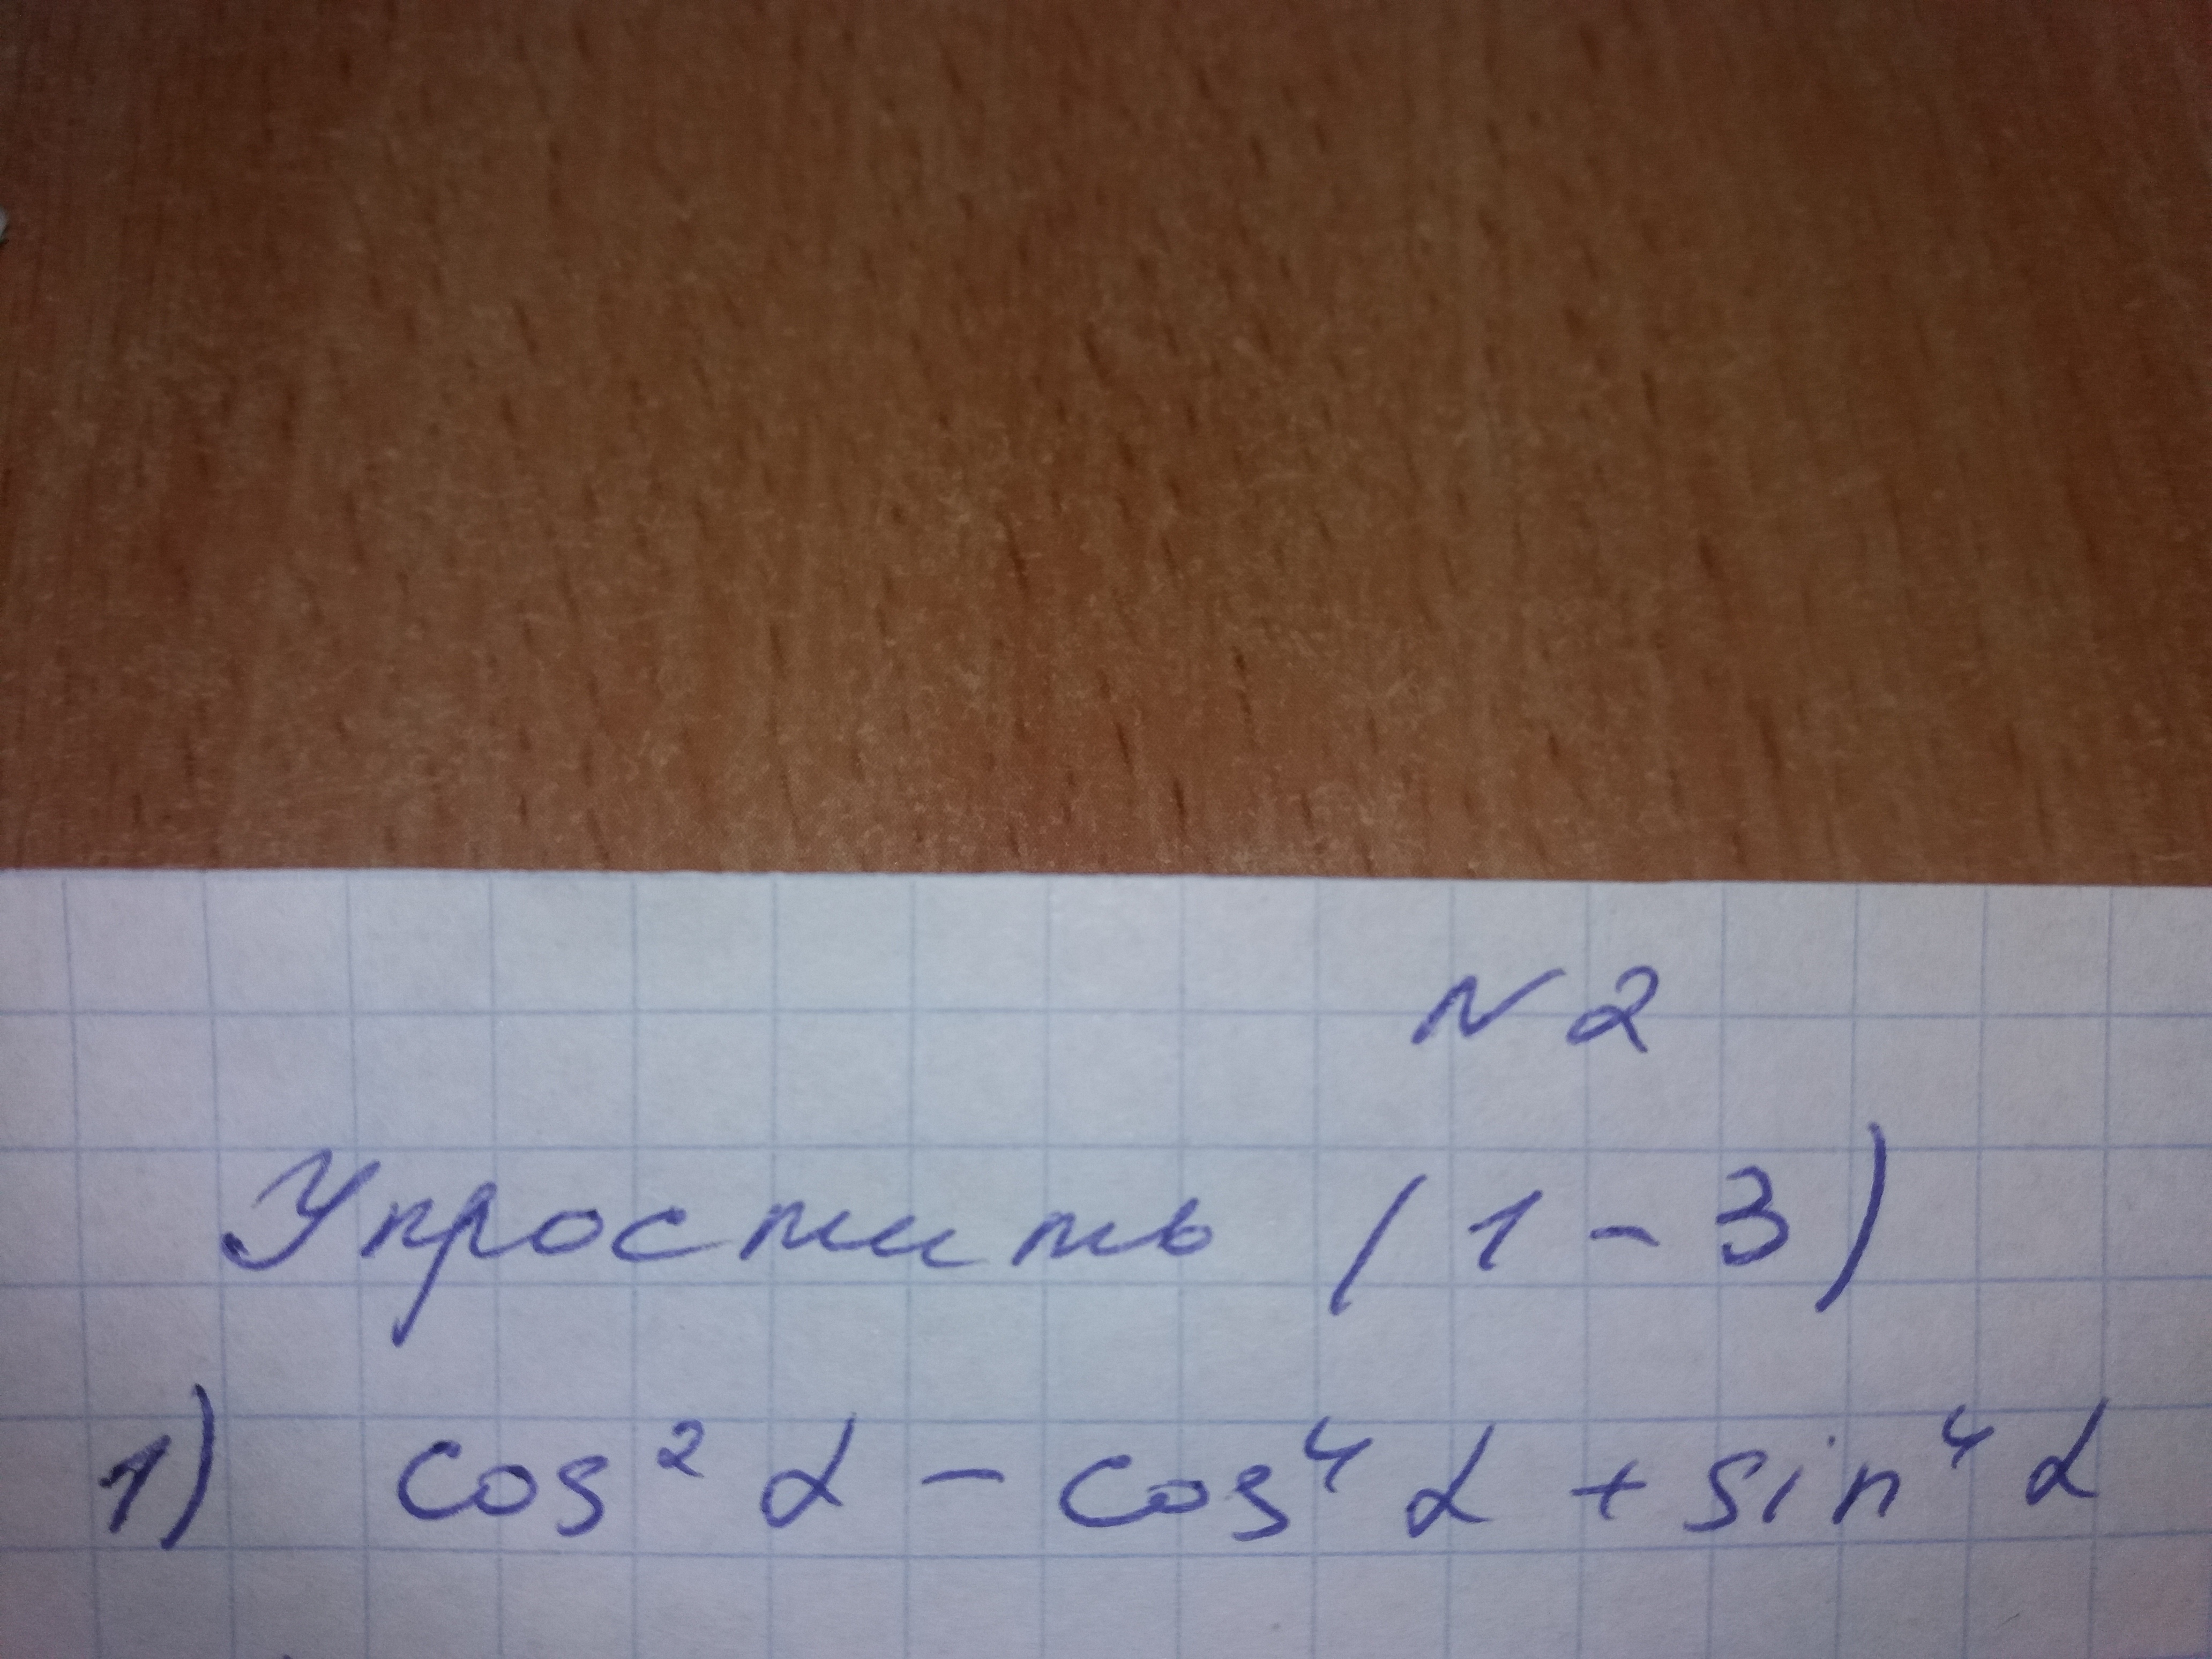 N 2
Упростить (1 - 3)
1) cos² α - cos⁴ α + sin⁴ α